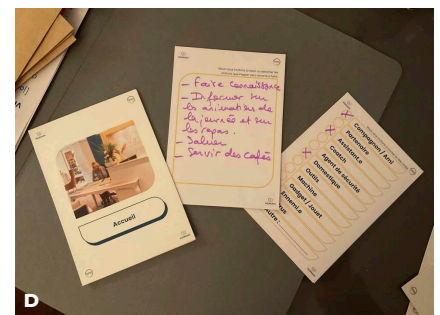 Accueil
- Faire connaissance
- Informer sur
les animations de
la journée et sur
les repas.
- Saluer
- Servir des cafés
Compagnon / Ami
Partenaire
Assistant.e
Coach
Agent de sécurité
Domestique
Outils
Machine
Gadget / Jouet
Ennemi.e
Autre :
D